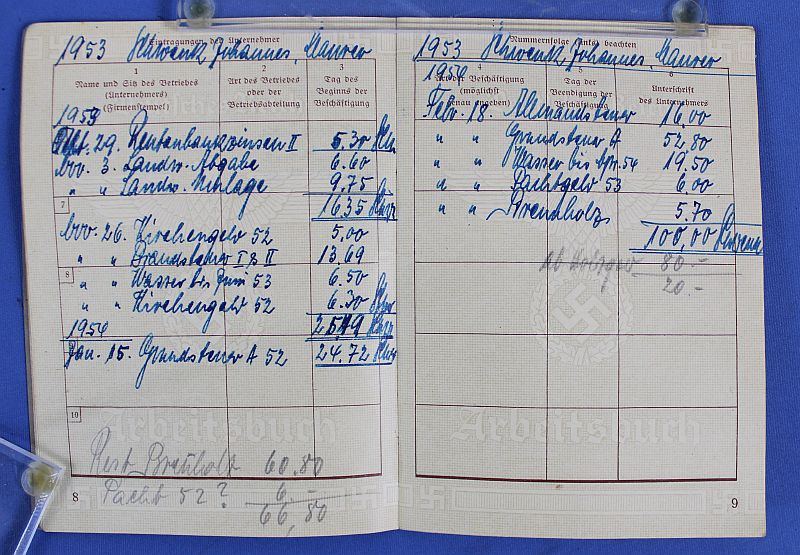 Eintragungen der Unternehmer
1953 Schwenk Johannes, Maurer
1 2 3
Name und Sitz des Betriebes Art des Betriebes Tag des
(Unternehmers) oder der Beginns der
(Firmenstempel) Betriebsabteilung Beschäftigung
1953
Okt. 29. Rentenbankzinsen II 5.30
Nov. 3. Landw. Abgabe 6.60
" " Landw. Umlage 9.75
7 16.35
Nov. 26. Kirchengeld 52 5.00
" " Brandsteuer I & II 13.69
8 " " Wasser bis Juni 53 6.50
" " Kirchengeld 52 6.30
1954 25.49
Jan. 15. Grundsteuer A 52 24.72
10
Arbeitsbuch
Rest Brennholz 60.80
Pacht 52? 6.–
66,80
8
Nummernfolge (links) beachten
1953 Schwenk Johannes, Maurer
1954
4 5 6
Art der Beschäftigung Tag der Unterschrift
(möglichst Beendigung der des Unternehmers
genau angeben) Beschäftigung
Febr. 18. Allmandsteuer 16.00
" " Grundsteuer A 52,80
" " Wasser bis Apr. 54 19.50
" " Pachtgeld 53 6.00
" " Brennholz 5.70
100,00 Schwenk
ab Holzgeld 80.–
20.–
Arbeitsbuch
9